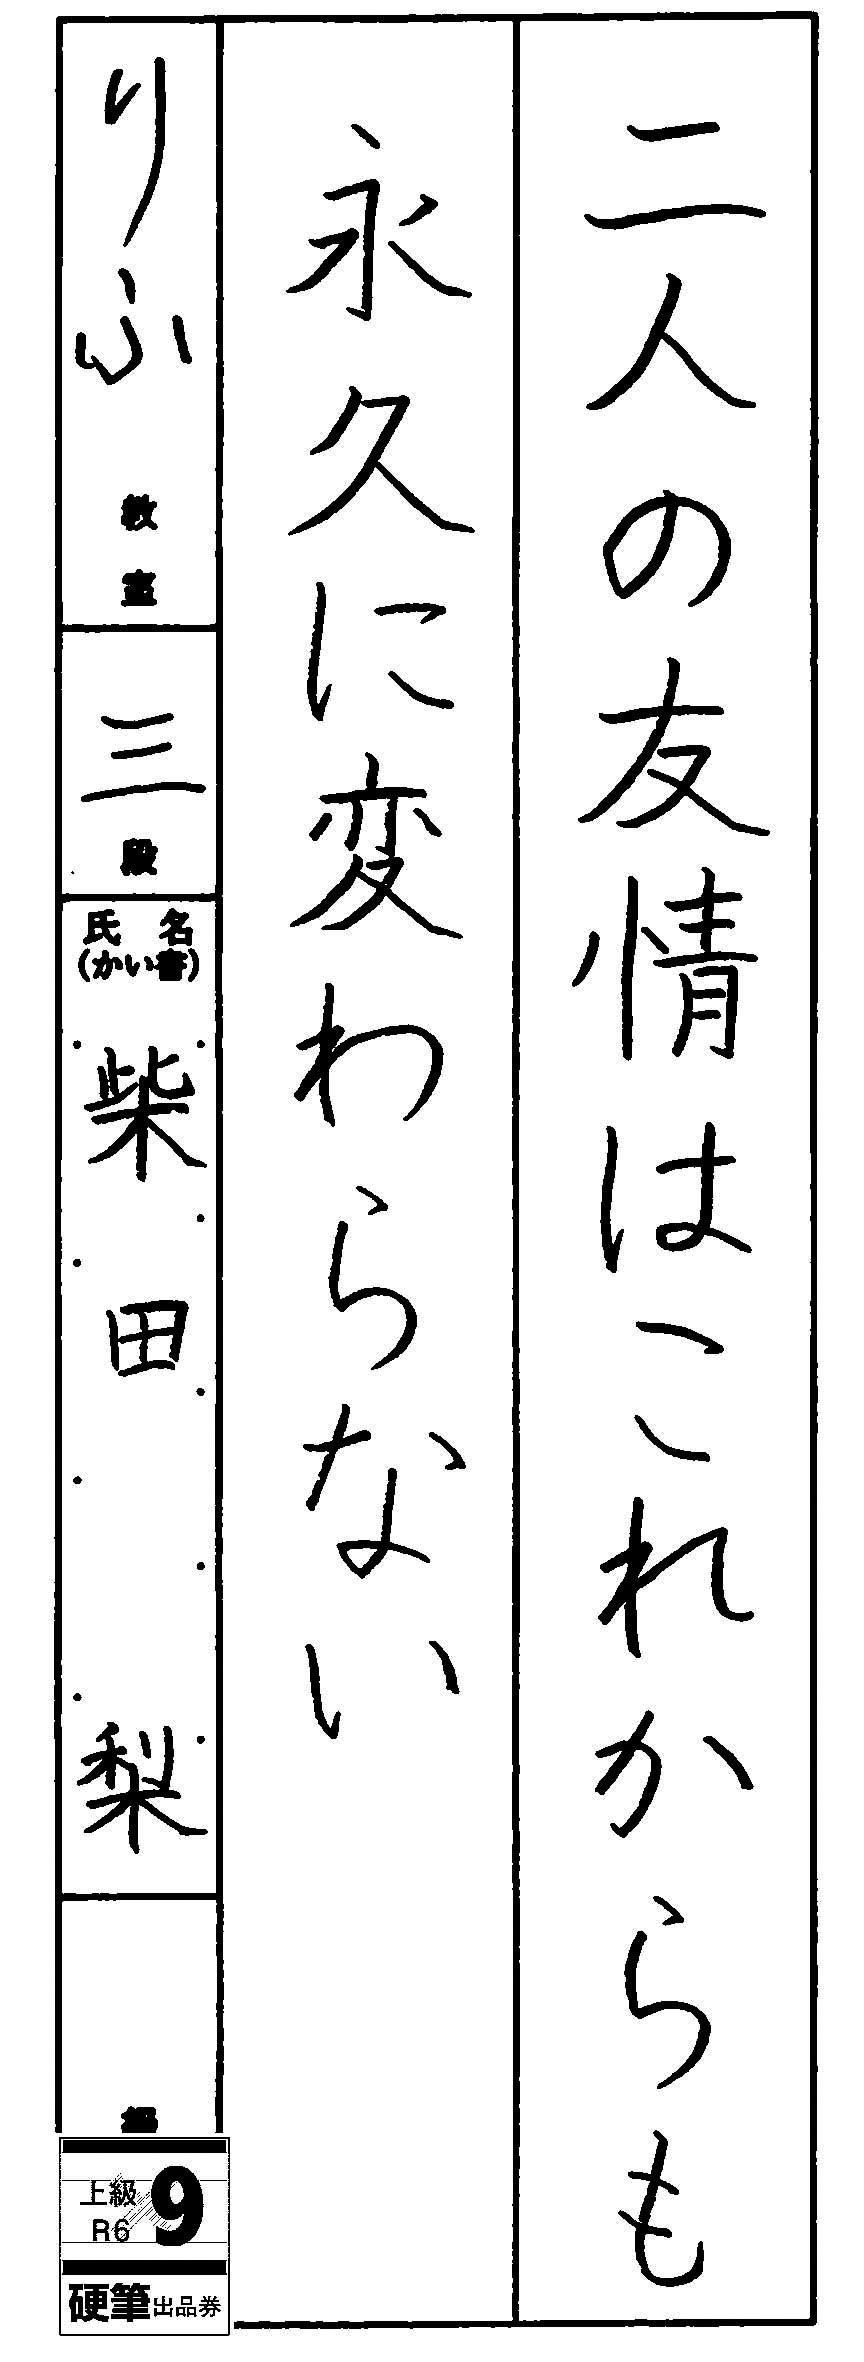 二人の友情はこれからも
永久に変わらない
りふ教室
三段
氏名
(かい書)
柴田梨
上級
R6
9
硬筆出品券